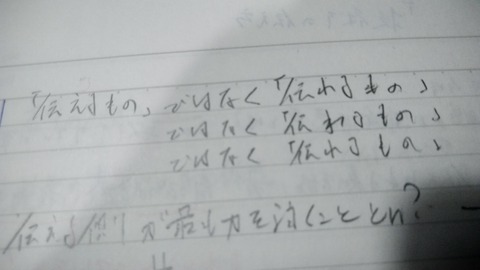 「伝えるもの」ではなく「伝わるもの」
ではなく「伝わるもの」
ではなく「伝わるもの」
伝える側が最も力を注ぐこととは?